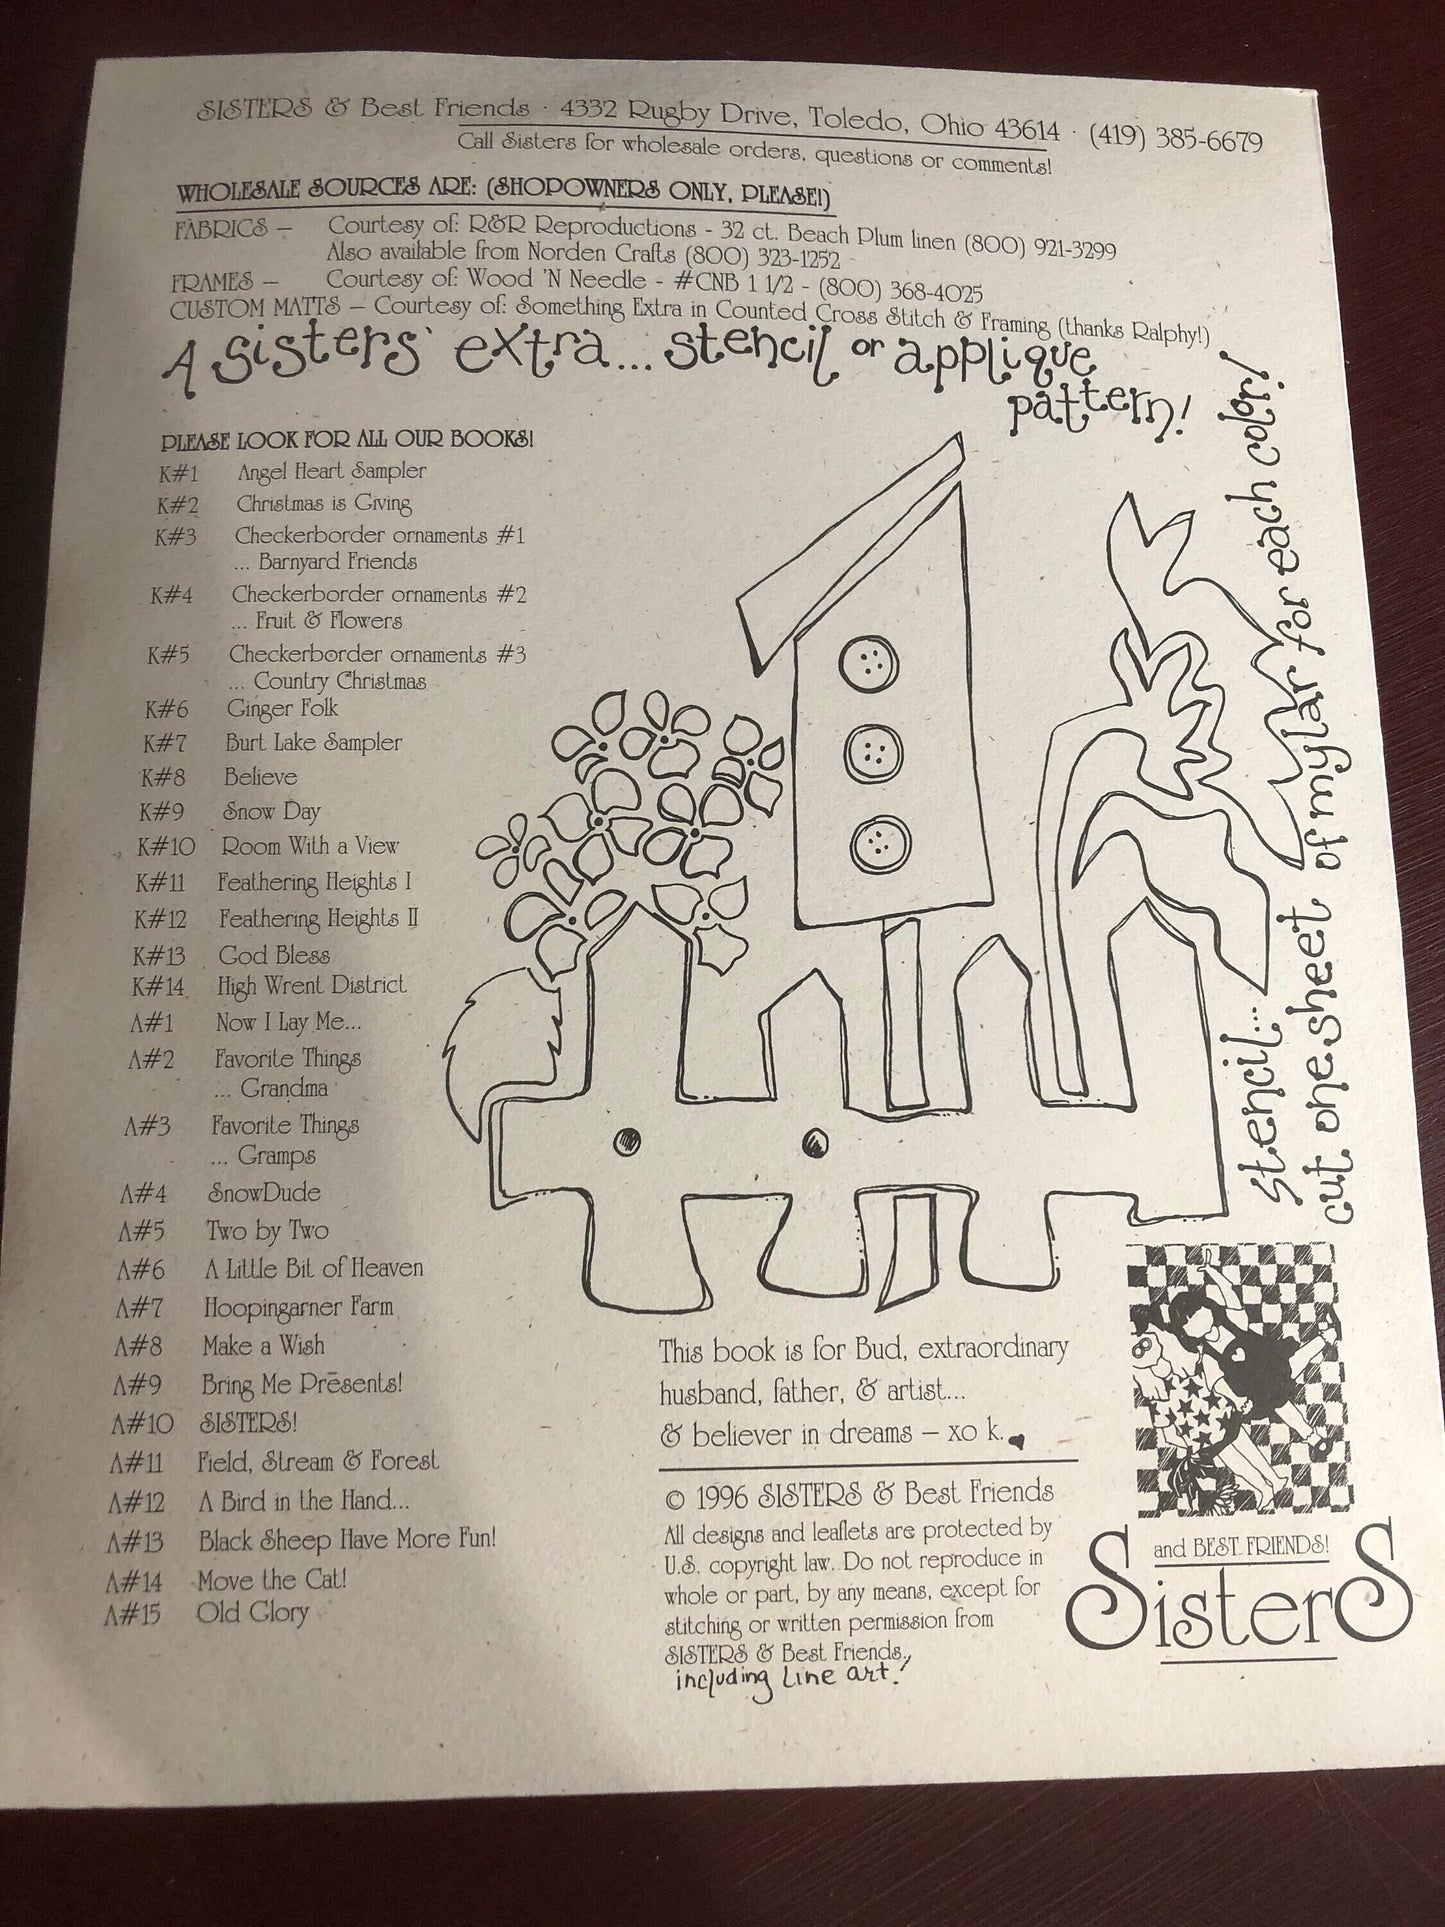 SISTERS & Best Friends · 4332 Rugby Drive, Toledo, Ohio 43614 · (419) 385-6679
Call Sisters for wholesale orders, questions or comments!
WHOLESALE SOURCES ARE: (SHOPOWNERS ONLY, PLEASE!)
FABRICS – Courtesy of: R&R Reproductions - 32 ct. Beach Plum linen (800) 921-3299
Also available from Norden Crafts (800) 323-1252
FRAMES – Courtesy of: Wood 'N Needle - #CNB 1 1/2 - (800) 368-4025
CUSTOM MATTS – Courtesy of: Something Extra in Counted Cross Stitch & Framing (thanks Ralphy!)
A sisters' extra... stencil or applique
pattern!
PLEASE LOOK FOR ALL OUR BOOKS!
K#1 Angel Heart Sampler
K#2 Christmas is Giving
K#3 Checkerborder ornaments #1
... Barnyard Friends
K#4 Checkerborder ornaments #2
... Fruit & Flowers
K#5 Checkerborder ornaments #3
... Country Christmas
K#6 Ginger Folk
K#7 Burt Lake Sampler
K#8 Believe
K#9 Snow Day
K#10 Room With a View
K#11 Feathering Heights I
K#12 Feathering Heights II
K#13 God Bless
K#14 High Wrent District
A#1 Now I Lay Me...
A#2 Favorite Things
... Grandma
A#3 Favorite Things
... Gramps
A#4 SnowDude
A#5 Two by Two
A#6 A Little Bit of Heaven
A#7 Hoopingarner Farm
A#8 Make a Wish
A#9 Bring Me Presents!
A#10 SISTERS!
A#11 Field, Stream & Forest
A#12 A Bird in the Hand...
A#13 Black Sheep Have More Fun!
A#14 Move the Cat!
A#15 Old Glory
stencil...
cut one sheet of mylar for each color!
This book is for Bud, extraordinary
husband, father, & artist...
& believer in dreams – xo k.
© 1996 SISTERS & Best Friends
All designs and leaflets are protected by
U.S. copyright law. Do not reproduce in
whole or part, by any means, except for
stitching or written permission from
SISTERS & Best Friends,
including line art!
and BEST FRIENDS!
SisterS